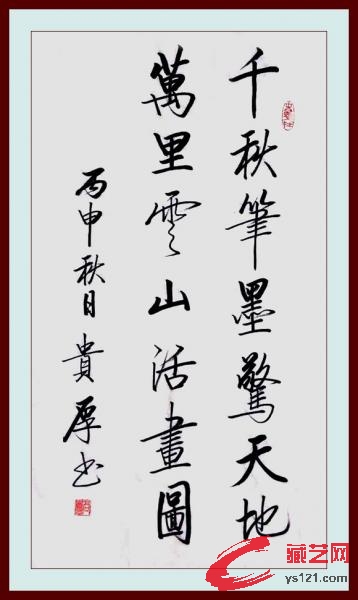 千秋筆墨驚天地
萬里雲山活畫圖
丙申秋日貴厚书
藏艺网
ys121.com